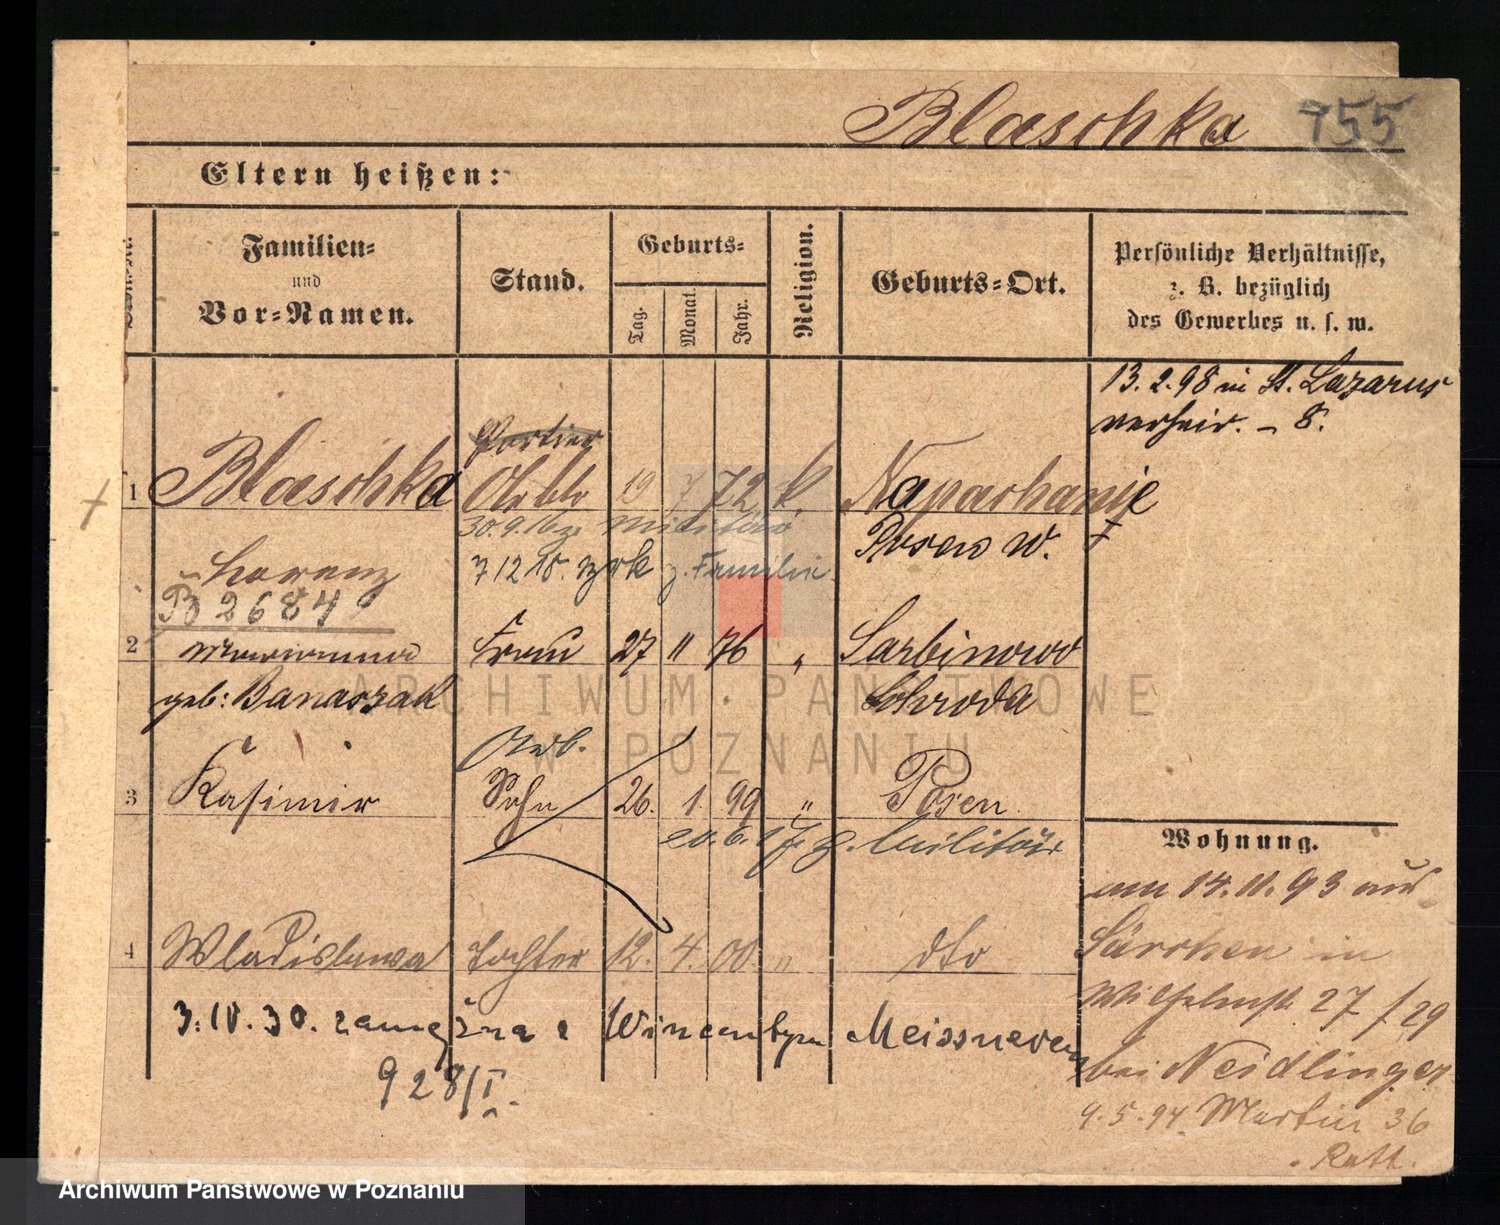 Blaschka 755
Eltern heißen:
Familien=
und
Vor=Namen.
Stand.
Geburts=
Tag.
Monat.
Jahr.
Religion.
Geburts=Ort.
Persönliche Verhältnisse,
z. B. bezüglich
des Gewerbes u. s. w.
13. 2. 98 in St. Lazarus
verheir. – 8.
Portier
1 Blaschka 19 7 72 k. Napachanie
30.9.16 z. Militär
Posen W.
7 12 18. zrk z. Familie
Lorenz
B 2684
2 Marianna Frau 27 11 76 " Sarbinowo
geb: Banaszak Schroda
Arb.
3 Kasimir Sohn 26. 1. 99 " Posen
20.6.17 z. Militär
Wohnung.
am 14. 11. 93 aus
4 Wladislawa Tochter 12. 4. 00. " dto
in
Wilhelmstr 27/29
3. IV. 30. zamężna z Wincentym Meissnerem
bei Neidlinger
928/I.
9.5.94. Martin 36
Ratt.
ARCHIWUM PAŃSTWOWE
W POZNANIU
Archiwum Państwowe w Poznaniu